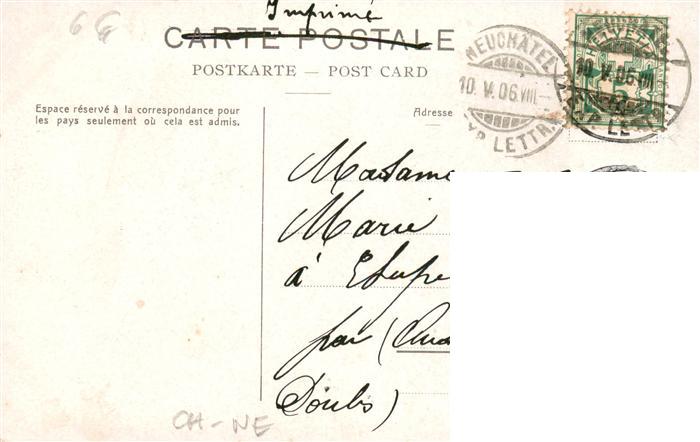 6 €
Imprimé
CARTE POSTALE
POSTKARTE — POST CARD
Espace réservé à la correspondance pour
les pays seulement où cela est admis.
Adresse
NEUCHÂTEL
10.V.06.VIII—
EXP LETTR.
HELVETIA
10.V.06.VIII
EXP LE
Madame
Marie
à Etupe
par (Au
Doubs)
CH-NE